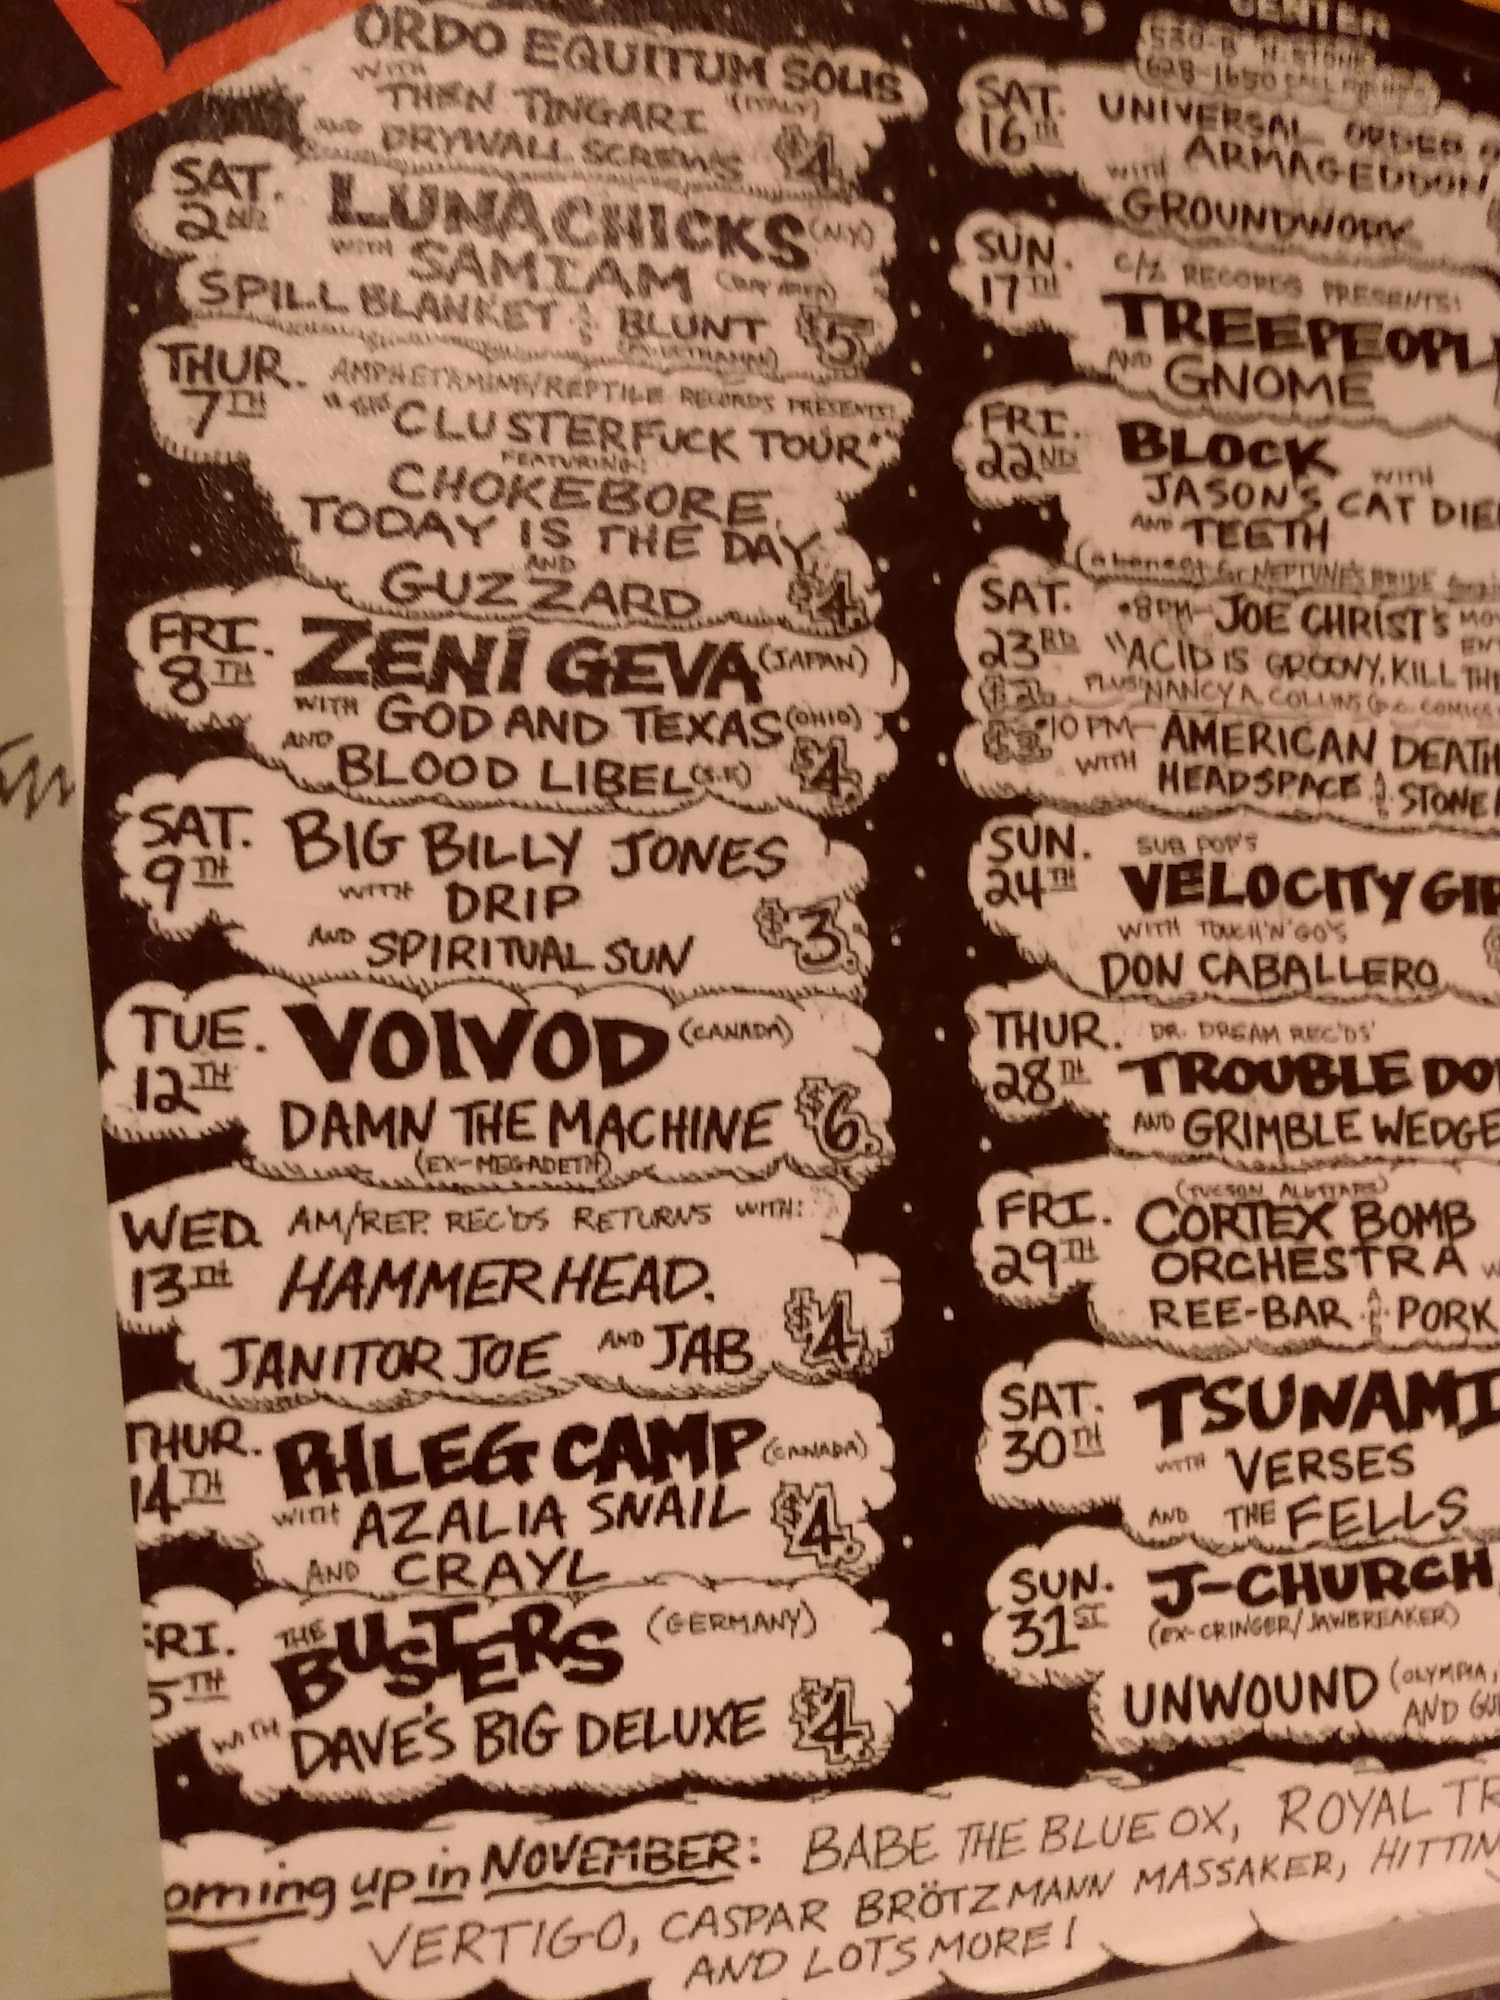 CENTER
ORDO EQUITUM SOLIS
WITH
(ITALY)
THEN TINGARI
AND DRYWALL SCREWS $4.
SAT. 2ND
LUNACHICKS (N.Y.)
WITH SAMIAM (BAY AREA)
SPILL BLANKET AND BLUNT $5.
THUR. 7TH
AMPHETAMINE/REPTILE RECORDS PRESENTS:
"CLUSTERFUCK TOUR"
FEATURING:
CHOKEBORE,
TODAY IS THE DAY,
AND
GUZZARD $4.
FRI. 8TH
ZENI GEVA (JAPAN)
WITH GOD AND TEXAS (OHIO)
AND BLOOD LIBEL (S.F.) $4.
SAT. 9TH
BIG BILLY JONES
WITH DRIP
AND SPIRITUAL SUN $3.
TUE. 12TH
VOIVOD (CANADA)
DAMN THE MACHINE $6.
(EX-MEGADETH)
WED. 13TH
AM/REP. REC'DS RETURNS WITH:
HAMMERHEAD.
JANITOR JOE AND JAB $4.
THUR. 14TH
PHLEG CAMP (CANADA)
WITH AZALIA SNAIL
AND CRAYL $4.
FRI. 5TH
THE BUSTERS (GERMANY)
WITH DAVE'S BIG DELUXE $4.
530-B N. STONE
628-1650 CALL FOR INFO
SAT. 16TH
UNIVERSAL ORDER
ARMAGEDDON
WITH
GROUNDWORK
SUN. 17TH
C/Z RECORDS PRESENTS:
TREEPEOPL
AND GNOME
FRI. 22ND
BLOCK WITH
JASON'S CAT DIE
AND TEETH
(a benefit for NEPTUNE'S BRIDE
SAT. 23RD
•8PM- JOE CHRIST'S
"ACID IS GROOVY, KILL THE
$2. PLUS NANCY A. COLLINS (D.C. COMICS
•10PM- AMERICAN DEATH
WITH HEADSPACE AND STONE
SUN. 24TH
SUB POP'S
VELOCITY GIR
WITH TOUCH 'N' GO'S
DON CABALLERO
THUR. 28TH
DR. DREAM REC'DS'
TROUBLE DO
AND GRIMBLE WEDGE
FRI. 29TH
(TUCSON ALLSTARS)
CORTEX BOMB
ORCHESTRA W
REE-BAR AND PORK
SAT. 30TH
TSUNAMI
WITH VERSES
AND THE FELLS
SUN. 31ST
J-CHURCH
(EX-CRINGER/JAWBREAKER)
UNWOUND (OLYMPIA,
AND GU
oming up in NOVEMBER: BABE THE BLUE OX, ROYAL TR
VERTIGO, CASPAR BRÖTZMANN MASSAKER, HITTIN
AND LOTS MORE!